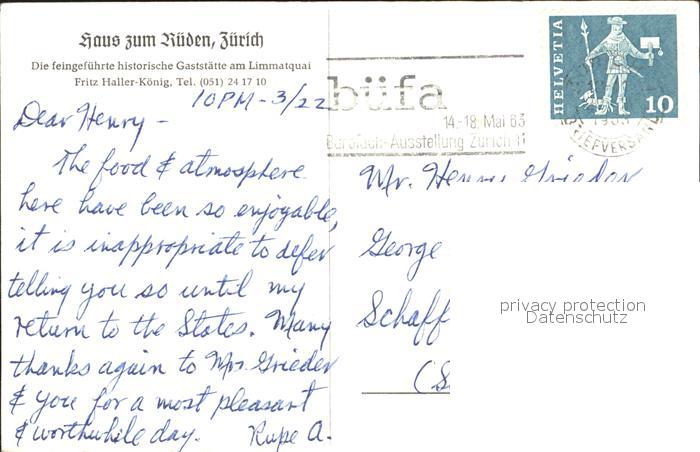 Haus zum Rüden, Zürich
Die feingeführte historische Gaststätte am Limmatquai
Fritz Haller-König, Tel. (051) 24 17 10
10 PM - 3/22
Dear Henry -
The food & atmosphere
here have been so enjoyable,
it is inappropriate to defer
telling you so until my
return to the States. Many
thanks again to Mr. Grieder
& you for a most pleasant
& worthwhile day. Rupe A.
büfa
14.-18. Mai 63
Bürofach-Ausstellung Zürich 11
HELVETIA
10
BRIEFVERSAND
Mr. Henry Grieder
George
Schaff
(S
privacy protection
Datenschutz